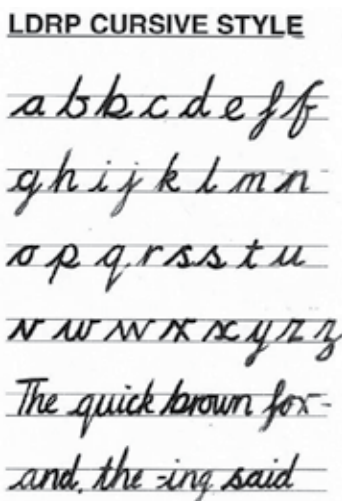 LDRP CURSIVE STYLE
a b b c d e f f
g h i j k l m n
o p q r s s t u
v w w x x y z z
The quick brown fox-
and, the -ing said